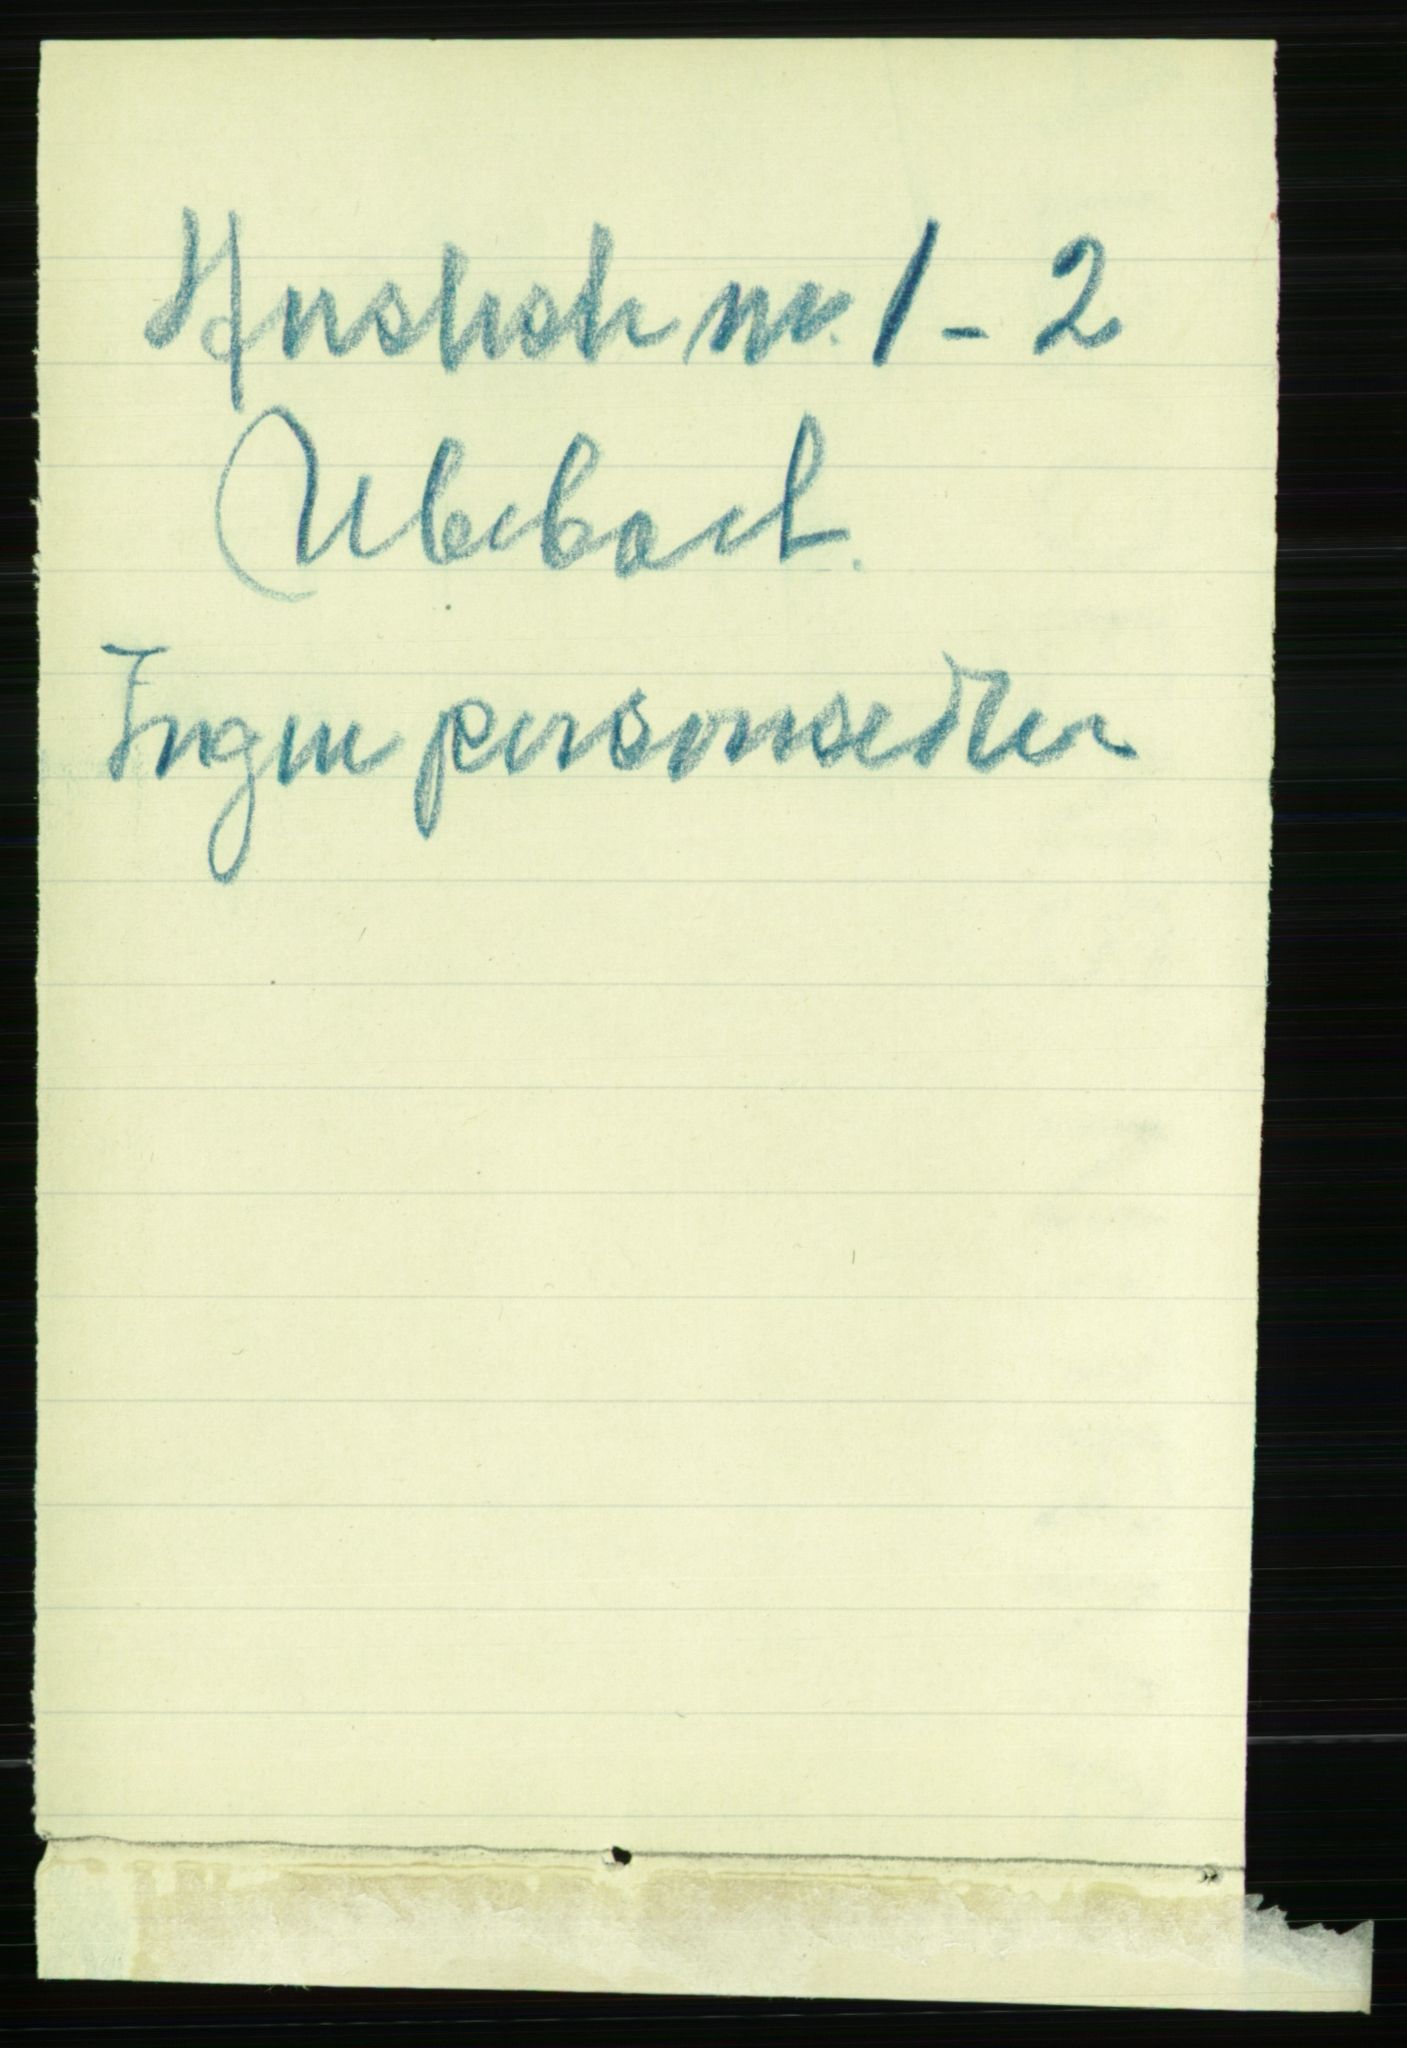 Husliste nr. 1-2
Ubebodt.
Ingen personsedler